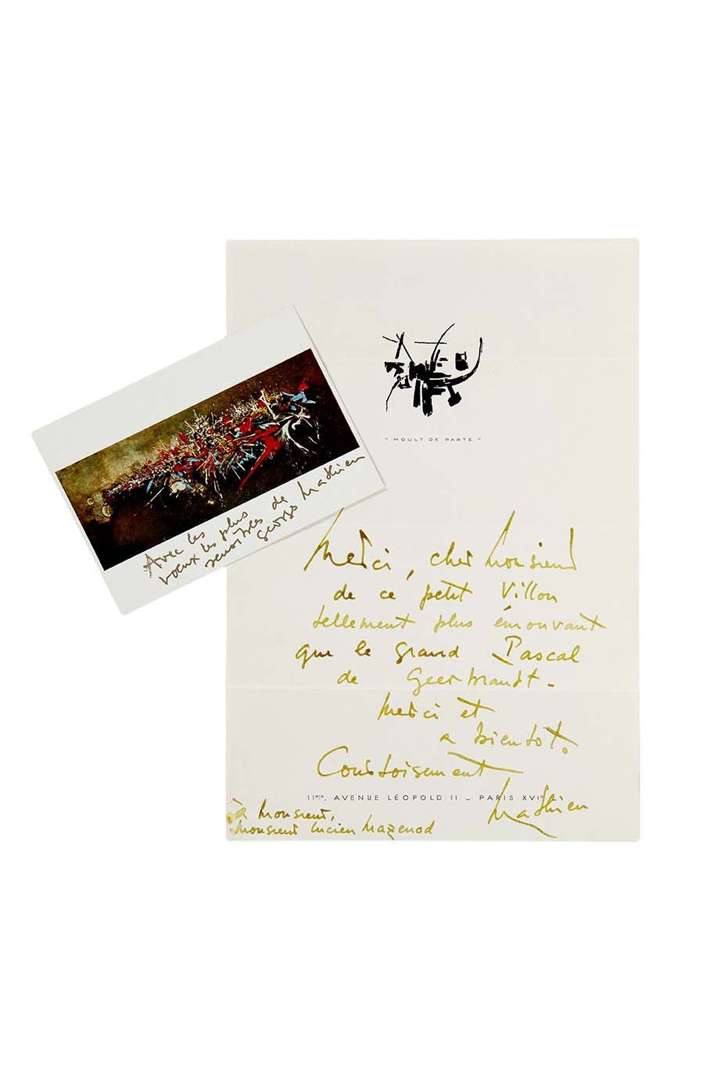 Avec les plus
voeux les plus de
sensibles
Georges Mathieu
" MOULT DE PARTE "
Merci, cher Monsieur
de ce petit Villon
tellement plus émouvant
que le grand Pascal
de
Merci et
a bientot.
Courtoisement
Mathieu
AVENUE LÉOPOLD II _ PARIS XVIe
à Monsieur,
Monsieur Lucien Mazenod